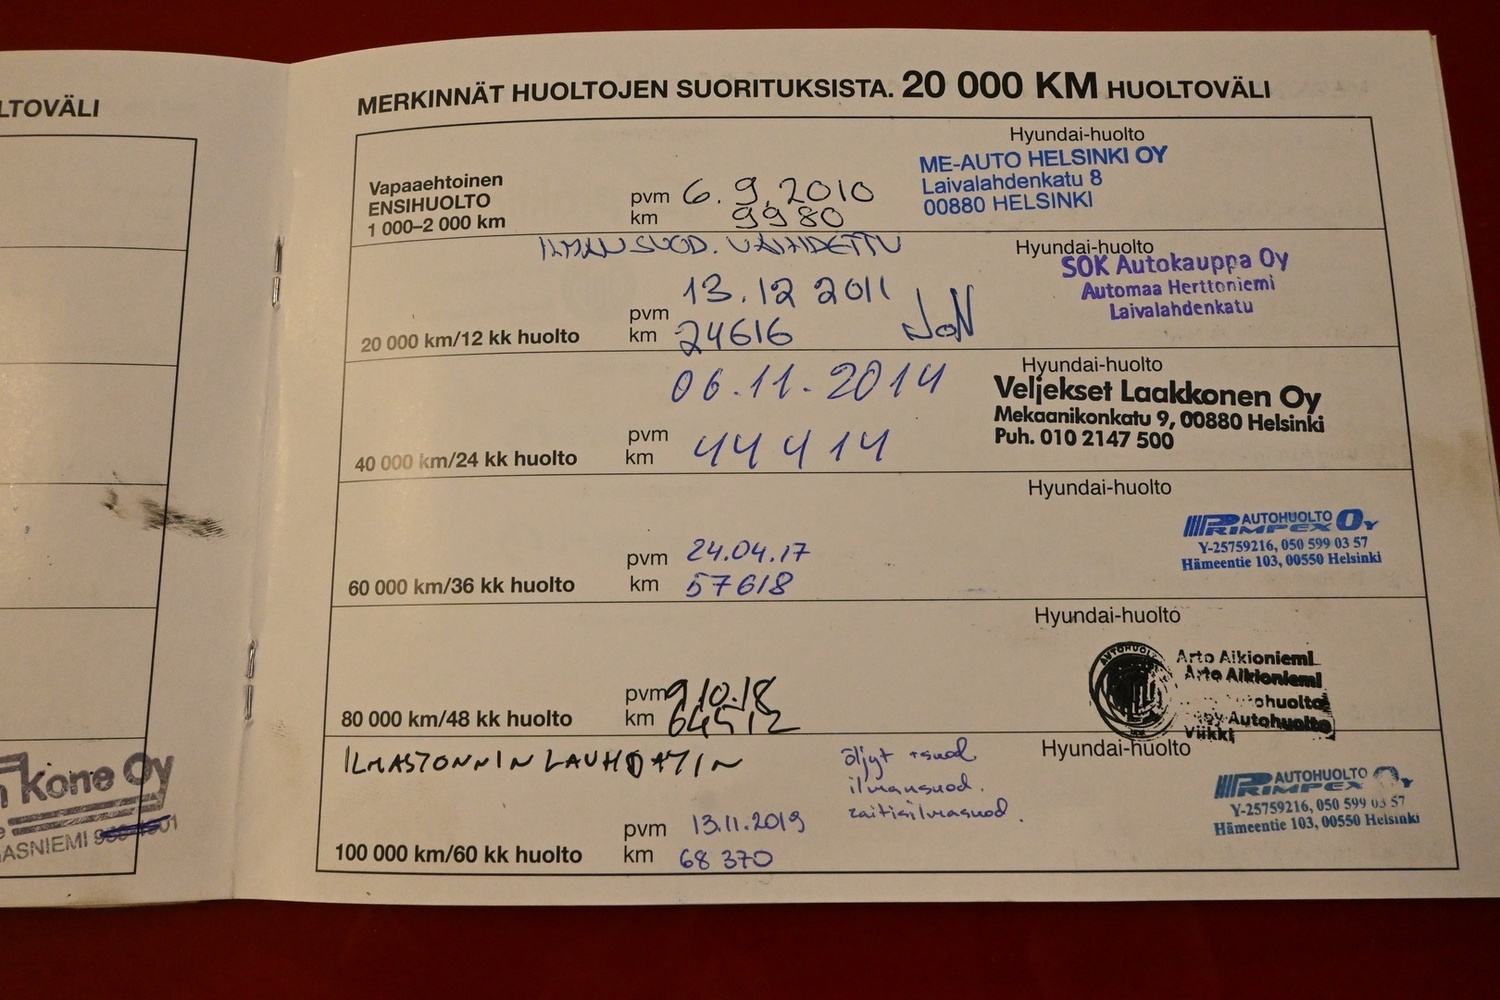 LTOVÄLI
Kone Oy
ASNIEMI
MERKINNÄT HUOLTOJEN SUORITUKSISTA. 20 000 KM HUOLTOVÄLI
Hyundai-huolto
ME-AUTO HELSINKI OY
Laivalahdenkatu 8
00880 HELSINKI
Vapaaehtoinen
ENSIHUOLTO
1 000–2 000 km
pvm 6.9.2010
km 9980
ILMANSUOD. VAIHDETTU
Hyundai-huolto
SOK Autokauppa Oy
Automaa Herttoniemi
Laivalahdenkatu
pvm 13.12 2011
20 000 km/12 kk huolto km 24616
Hyundai-huolto
Veljekset Laakkonen Oy
Mekaanikonkatu 9, 00880 Helsinki
Puh. 010 2147 500
pvm 06.11.2014
40 000 km/24 kk huolto km 44414
Hyundai-huolto
PRIMPEX AUTOHUOLTO OY
Y-25759216, 050 599 03 57
Hämeentie 103, 00550 Helsinki
pvm 24.04.17
60 000 km/36 kk huolto km 57618
Hyundai-huolto
AUTOHUOLTO
Arto Aikioniemi
Arto Aikioniemi
Autohuolto
Viikki
pvm 9.10.18
80 000 km/48 kk huolto km 64512
ILMASTONNIN LAUHDATIN
öljyt + suod.
ilmansuod.
raitisilmasuod.
Hyundai-huolto
PRIMPEX AUTOHUOLTO OY
Y-25759216, 050 599 03 57
Hämeentie 103, 00550 Helsinki
pvm 13.11.2019
100 000 km/60 kk huolto km 68 370